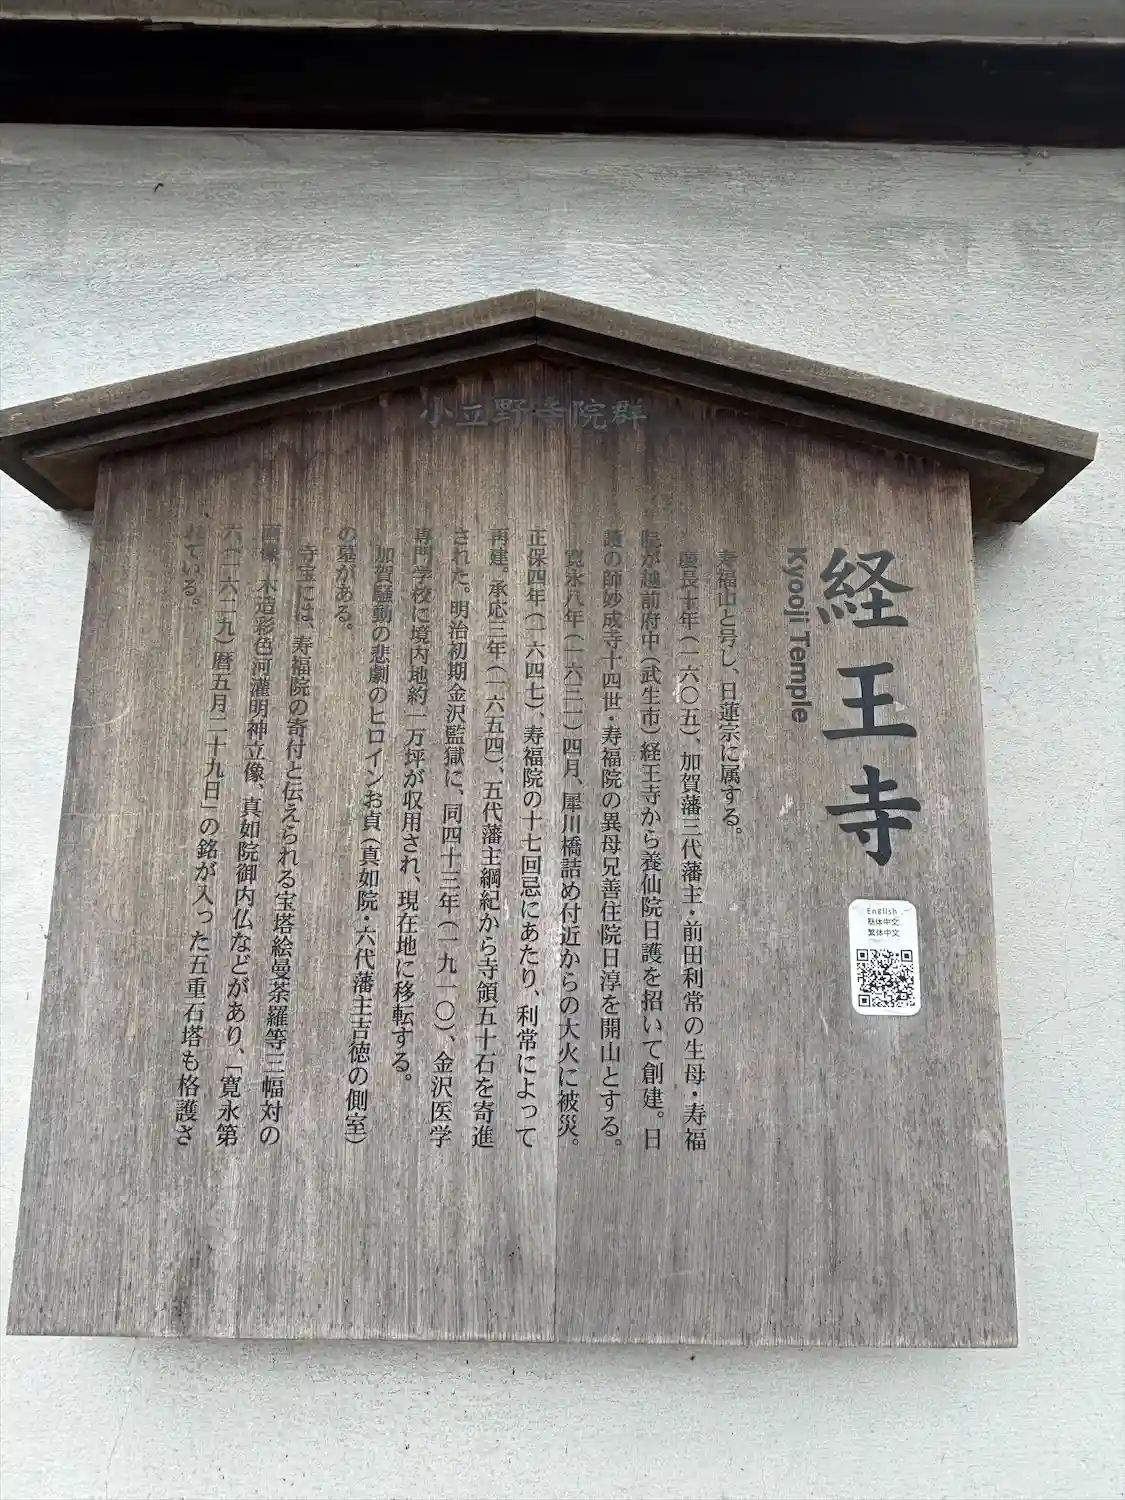 小立野寺院群
経王寺
Kyooji Temple
English
簡体中文
繁体中文
寿福山と号し、日蓮宗に属する。
慶長十年（一六〇五）、加賀藩三代藩主・前田利常の生母・寿福
院が越前府中（武生市）経王寺から養仙院日護を招いて創建。日
護の師妙成寺十四世・寿福院の異母兄善住院日淳を開山とする。
寛永八年（一六三一）四月、犀川橋詰め付近からの大火に被災。
正保四年（一六四七）、寿福院の十七回忌にあたり、利常によって
再建。承応三年（一六五四）、五代藩主綱紀から寺領五十石を寄進
された。明治初期金沢監獄に、同四十三年（一九一〇）、金沢医学
専門学校に境内地約一万坪が収用され、現在地に移転する。
加賀騒動の悲劇のヒロインお貞（真如院・六代藩主吉徳の側室）
の墓がある。
寺宝には、寿福院の寄付と伝えられる宝塔絵曼荼羅等三幅対の
画像、木造彩色河濯明神立像、真如院御内仏などがあり、「寛永第
六（一六二九）暦五月二十九日」の銘が入った五重石塔も格護さ
れている。